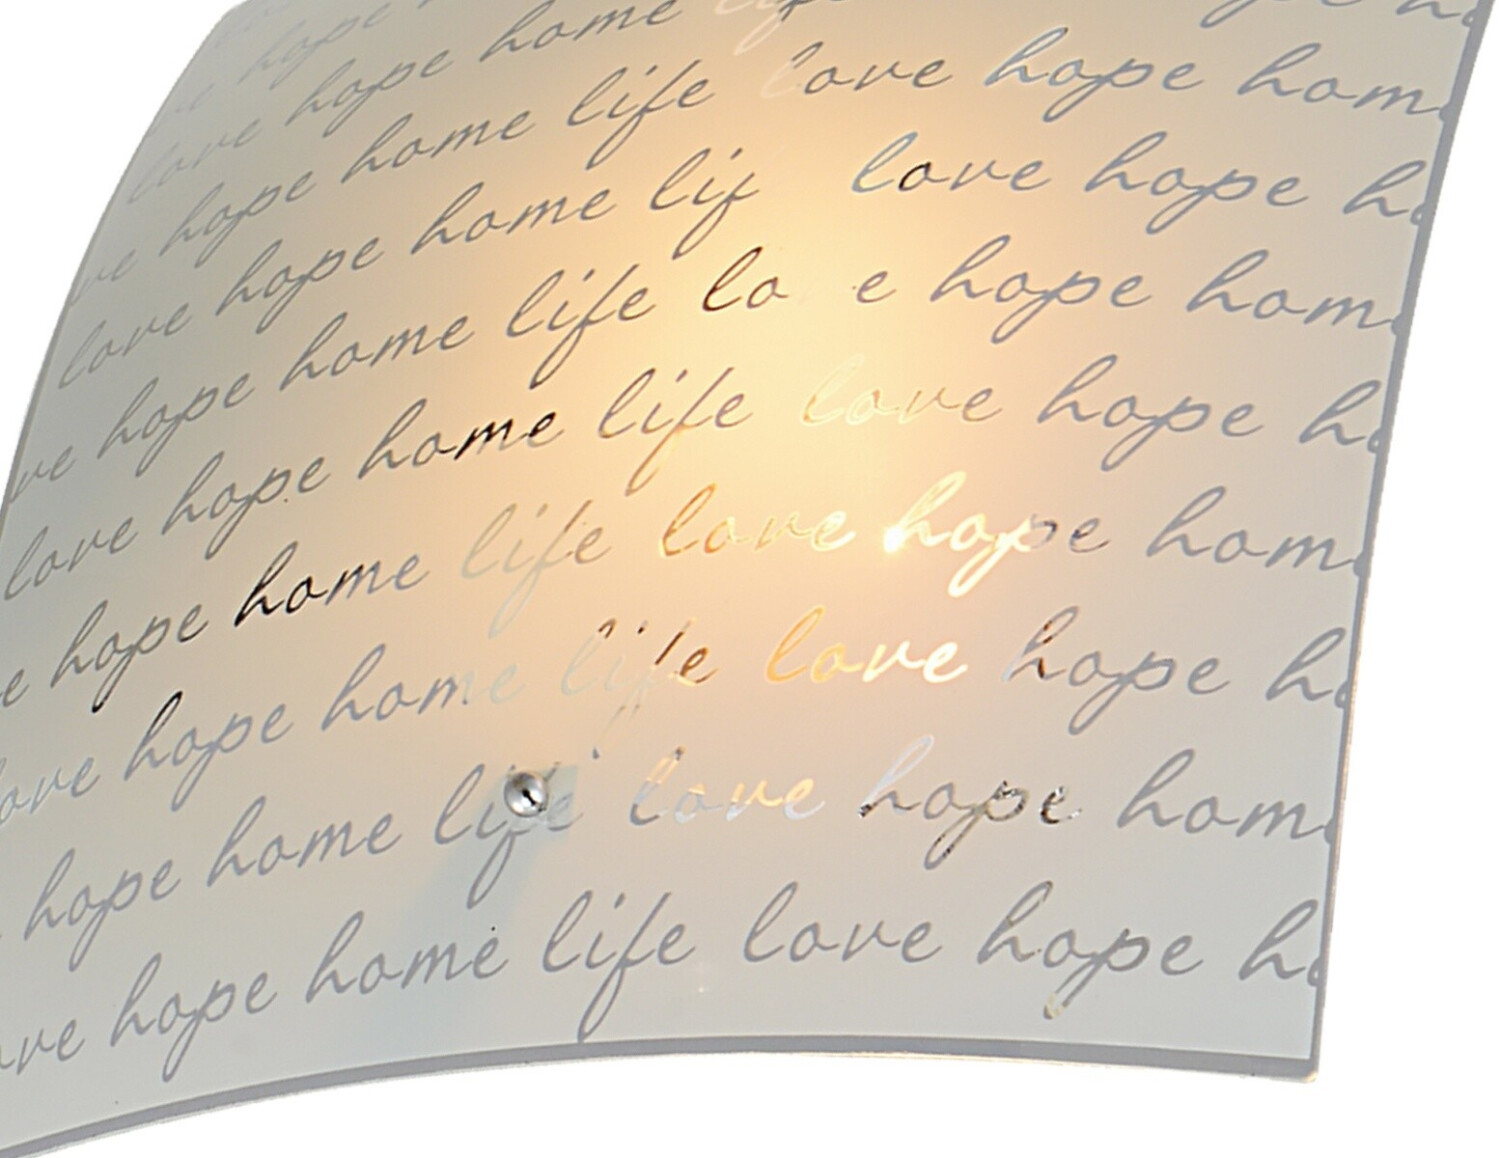 hope hope h
love hope home
hope home life love hope hom
love hope home lif love hope h
ve hope home life lo e hope hom
love hope home life love hope h
e hope home life love hope hom
love hope home life love hope h
hope home life love hope hom
ove hope home life love hope h